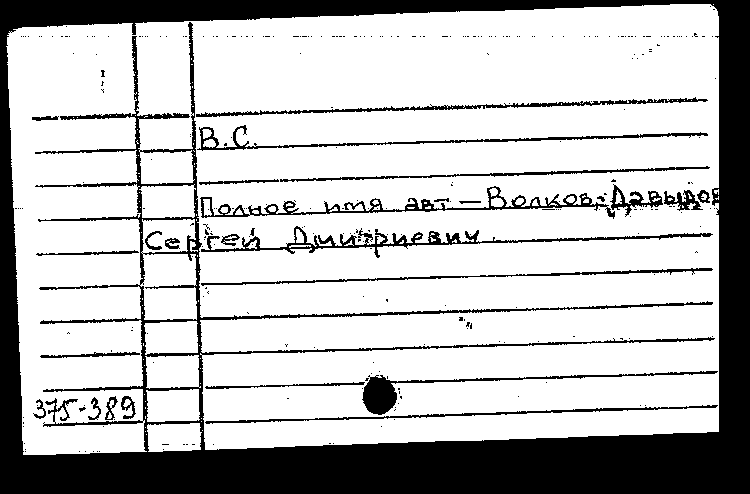 В.С.
Полное имя авт — Волков-Давыдов
Сергей Дмитриевич.
375-389